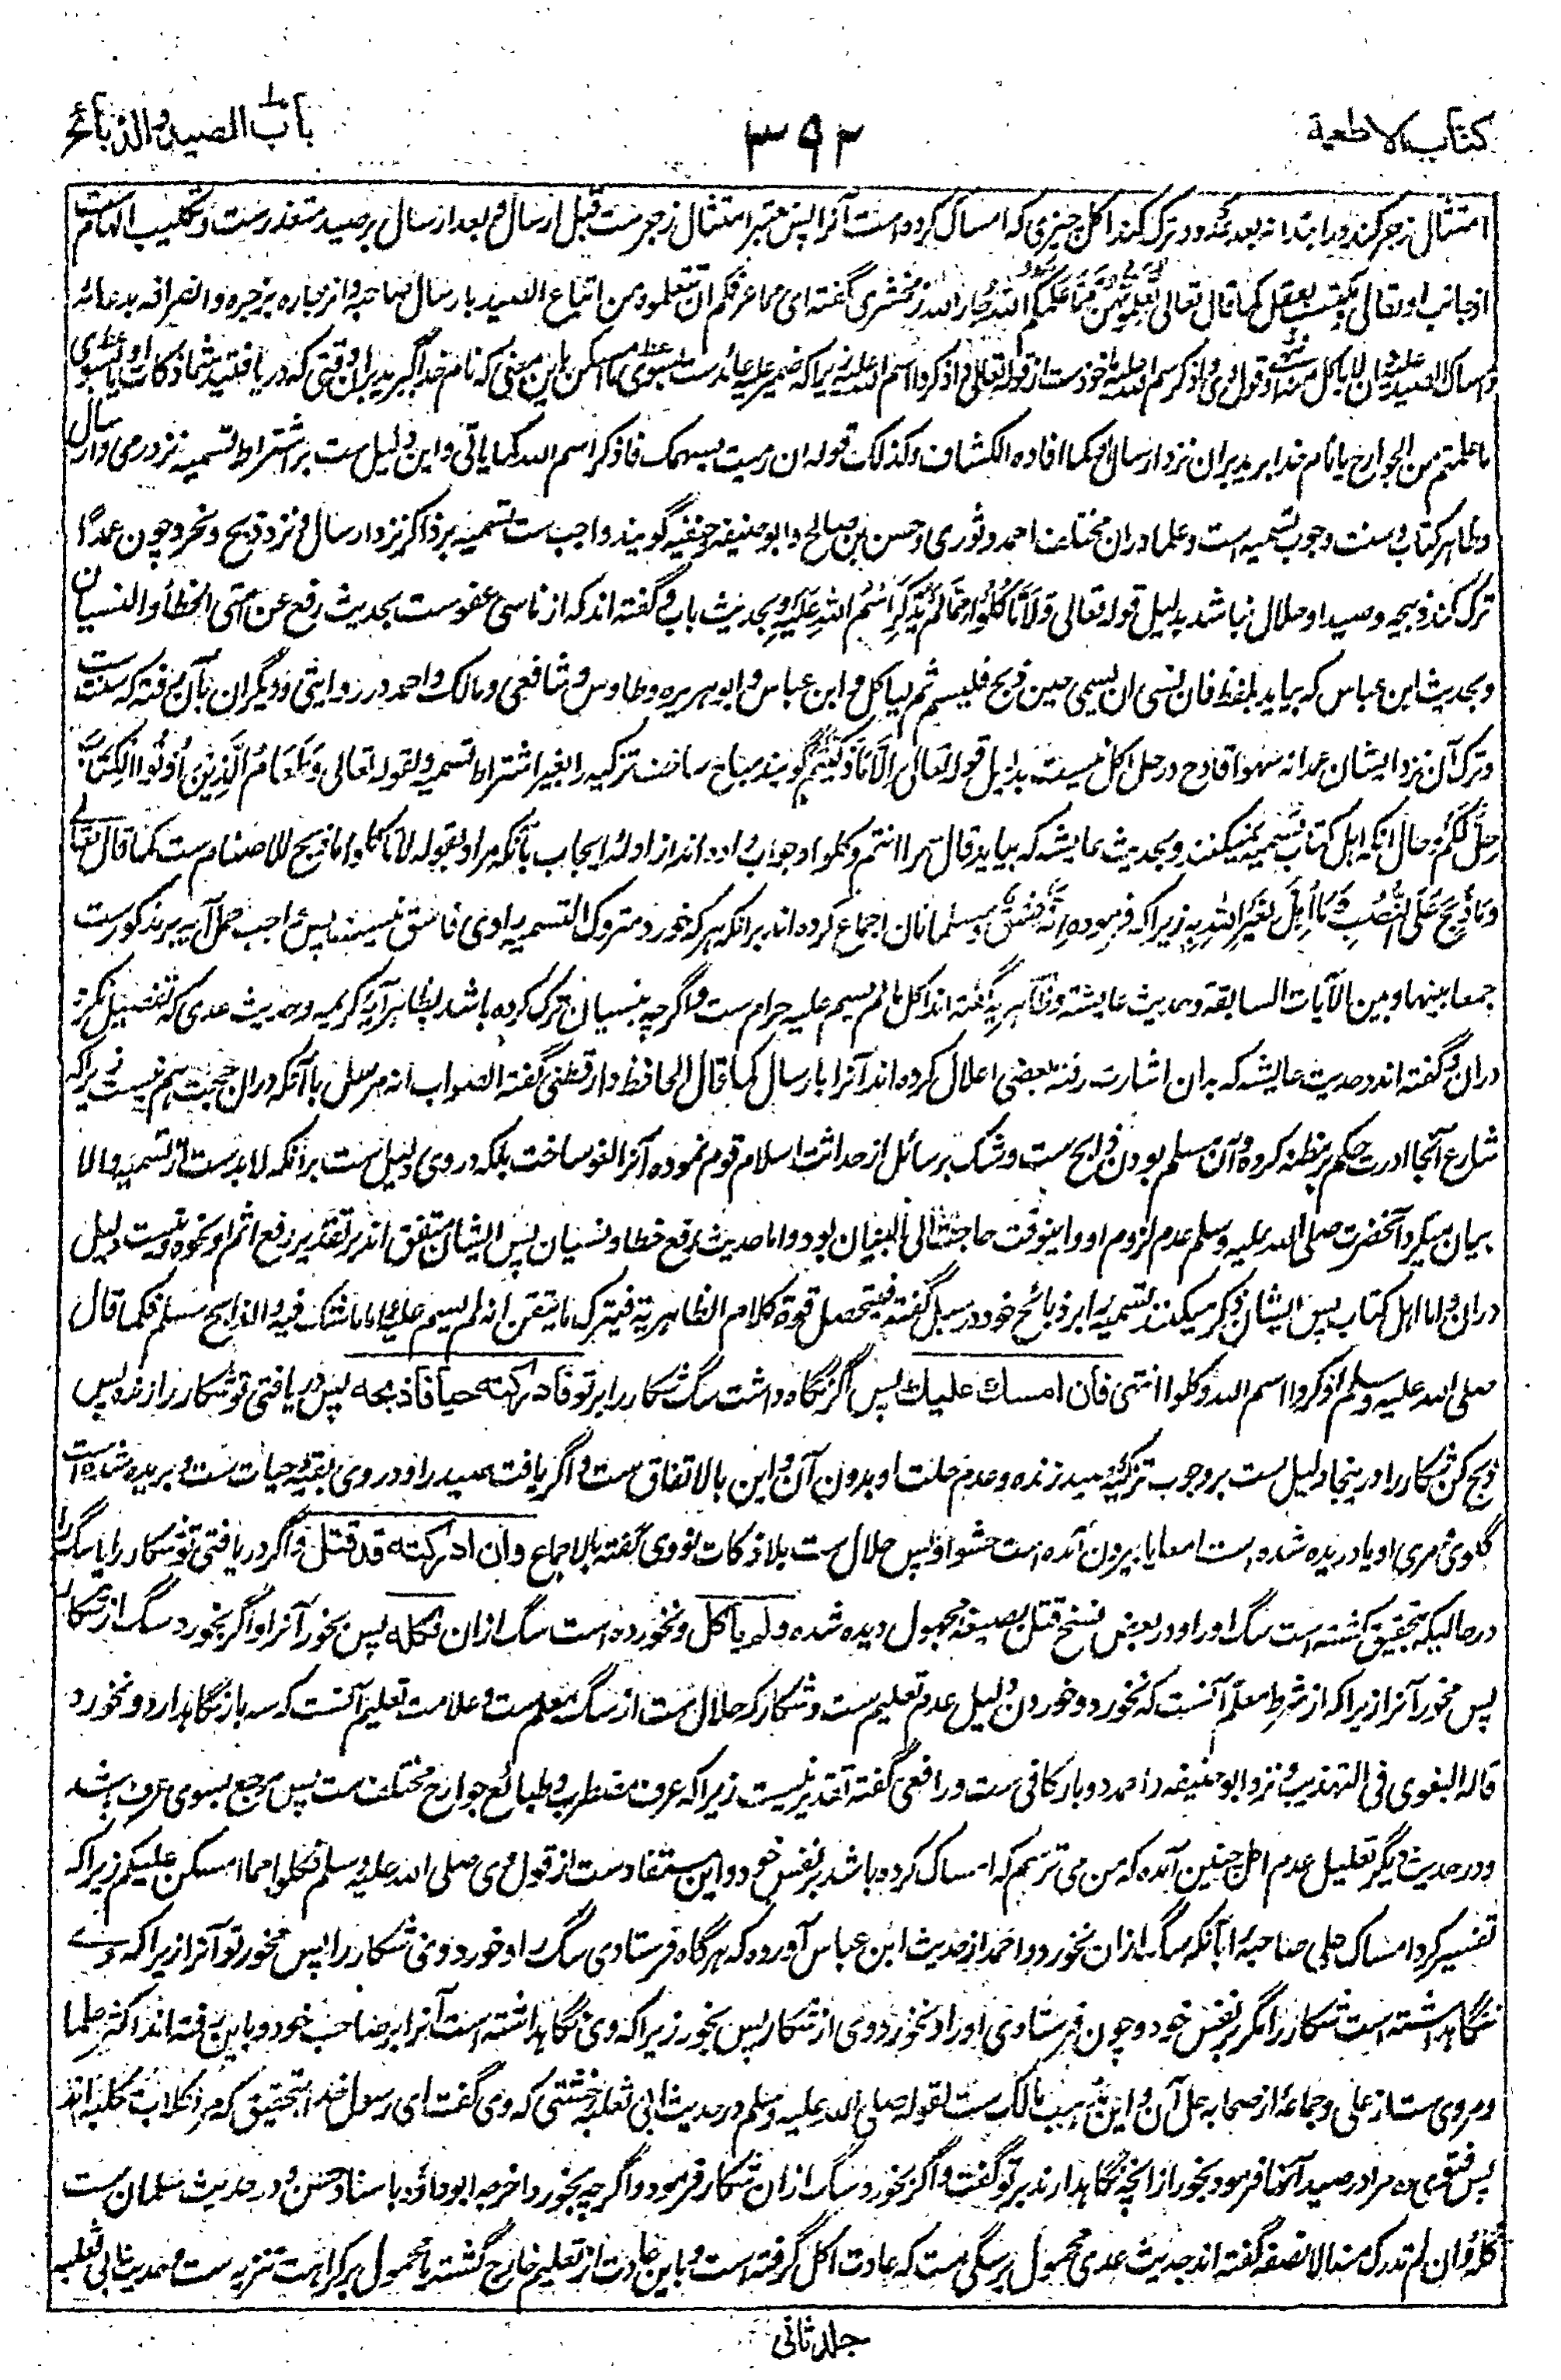 کتاب الاطعمة
۳۹۲
باب الصید والذبائح
امتثال زجر کند در ابتدا نه بعد عدو و ترک کند اکل چیزی که امساک کرده است آنرا پس معتبر امتثال زجرست قبل ارسال و بعد ارسال بر صید متعذرست و تکلیب الهامست
از جانب او تعالی و مکتسب بعقل کما قال تعالی تعلمونهن مما علمکم الله جار الله زمخشری گفته ای مما عرفکم ان تعلموه من اتباع الصید بارسال صاحبه و انزجاره بزجره و انصرافه بدعائه
و امساک الصید علیه و ان لا یاکل منه و قول وی و اذکر اسم الله علیه ماخوذست از قوله تعالی و اذکروا اسم الله علیه زیرا که ضمیر علیه عائدست بسوی ما امسکن باین معنی که نام خدا گیرید بران وقتی که دریافتید شما ذکات او یا بسوی
ما علمتم من الجوارح یا نام خدا برید بران نزد ارسال او کما افاده الکشاف و کذلک قوله ان رمیت بسهمک فاذکر اسم الله کما یاتی و این دلیل ست بر اشتراط تسمیه نزد رمی و ارسال
و ظاهر کتاب و سنت وجوب تسمیه است و علما دران مختلف احمد و ثوری و حسن بن صالح و ابو حنیفه و حنفیه گویند واجب ست تسمیه بر ذاکر نزد ارسال و نزد ذبح و نحر و چون عمدًا
ترک کند ذبیحه و صید او حلال نباشد بدلیل قوله تعالی وَلَا تَأکُلُوا مِمَّا لَمْ یُذْکَرِ اسْمُ اللهِ عَلَیْهِ و بحدیث باب و گفته اند که از ناسی عفوست بحدیث رفع عن امتی الخطأ و النسیان
و بحدیث ابن عباس که بیاید بلفظ فان نسی ان یسمی حین ذبح فلیسم ثم لیاکل و ابن عباس و ابو هریره و طاوس و شافعی و مالک و احمد در روایتی و دیگران بآن رفته که سنت ست
و ترک آن نزد ایشان عمدا نه سهوا قادح در حل اکل نیست بدلیل قوله تعالی إِلَّا مَا ذَکَّیْتُمْ گویند مباح ساخت تزکیه را بغیر اشتراط تسمیه و لقوله تعالی وَطَعَامُ الَّذِینَ أُوتُوا الْکِتَابَ
حِلٌّ لَکُمْ و حال آنکه اهل کتاب تسمیه نمیکنند و بحدیث عایشه که بیاید قال سموا انتم و کلوا و جواب داده اند از ادله ایجاب بآنکه مراد بقوله لا تاکلوا ما ذبح للاصنام ست کما قال تعالی
وَمَا ذُبِحَ عَلَی النُّصُبِ وَمَا أُهِلَّ لِغَیْرِ اللهِ بِهِ زیرا که فرموده وَإِنَّهُ لَفِسْقٌ و مسلمانان اجماع کرده اند برانکه هر که خورد متروک التسمیه را وی فاسق نیست پس واجب حمل آیه بر مذکورست
جمعا بینها و بین الآیات السابقة و حدیث عایشة و ظاهریه گفته اند اکل ما لم یسم علیه حرام ست و اگرچه بنسیان ترک کرده باشد بظاهر آیه کریمه و حدیث عدی که تفصیل نکرد
دران و گفته اند و حدیث عایشه که بدان اشارت رفته بعضی اعلال کرده اند آنرا بارسال کما قال الحافظ دارقطنی گفته الصواب انه مرسل با آنکه دران حجت هم نیست زیرا که
شارع آنجا ادارت حکم بر مظنه کرده و آن مسلم بودن ذابح ست و شک بر سائل از حداثت اسلام قوم نموده آنرا لغو ساخت بلکه در وی دلیل ست برانکه لابدست از تسمیه و الا
بیان میکرد آنحضرت صلی الله علیه و سلم عدم لزوم او و این وقت حاجت الی البیان بود و اما حدیث رفع خطا و نسیان پس ایشان متفق اند بر تقدیر رفع اثم او نحوه نیست دلیل
دران و اما اهل کتاب پس ایشان ذکر میکنند تسمیه را بر ذبائح خود در سبل گفته فیتحصل قوة کلام الظاهریة فیترک ما یتیقن انه لم یسم علیه و اما ما شک فیه و الذابح مسلم فکما قال
صلی الله علیه و سلم اذکروا اسم الله و کلوا انتهی فان امسک علیک پس اگر نگاه داشت سگ شکار را بر تو فادرکته حیا فاذبحه پس دریافتی تو شکار را زنده پس
ذبح کن شکار را درینجا دلیل ست بر وجوب تزکیه صید زنده و عدم حلت او بدون آن و این بالاتفاق ست و اگر یافت صید را و در وی بقیه حیات ست و بریده شده است
گلوی و مری او یا دریده شده است امعا یا بیرون آمده است حشو او پس حلال ست بلا ذکات نووی گفته بالاجماع و ان ادرکته قد قتل و اگر دریافتی تو شکار را یا سگ را
در حالیکه بتحقیق کشته است سگ او را و در بعض نسخ قتل بصیغه مجهول دیده شده و لم یاکل و نخورده است سگ ازان فکله پس بخور آنرا و اگر بخورد سگ از شکار
پس مخور آنرا زیرا که از شرط معلم آنست که نخورد و خوردن دلیل عدم تعلیم ست و شکار که حلال ست از سگ معلم ست و علامت تعلیم آنست که سه بار نگاهدارد و نخورد
قاله البغوی فی التهذیب و نزد ابو حنیفه و احمد دو بار کافی ست و رافعی گفته تقدیر نیست زیرا که عرف مضطرب و طبائع جوارح مختلف ست پس مرجع بسوی عرف باشد
و در حدیث دیگر تعلیل عدم اکل چنین آمده که من می ترسم که امساک کرده باشد بر نفس خود و این مستفادست از قول وی صلی الله علیه و سلم فکلوا مما امسکن علیکم زیرا که
تفسیر کرد امساک علی صاحبه را بآنکه سگ ازان نخورد و احمد از حدیث ابن عباس آورده که هرگاه فرستادی سگ را و خورد وی شکار را پس مخور تو آنرا زیرا که وی
نگاه داشته است شکار را مگر بر نفس خود و چون فرستادی او را و نخورد وی از شکار پس بخور زیرا که وی نگاه داشته است آنرا بر صاحب خود و باین رفته اند اکثر علما
و مروی ست از علی و جماعه از صحابه حل آن و این مذهب مالک ست لقوله صلی الله علیه و سلم در حدیث ابی ثعلبه خشنی که وی گفت ای رسول خدا بتحقیق که مرا کلاب مکلبه اند
پس فتوی ده مرا در صید آنها فرمود بخور از انچه نگاهدارند بر تو گفت و اگر بخورد سگ ازان شکار فرمود و اگرچه بخورد اخرجه ابو داود باسناد حسن و در حدیث سلمان ست
کله و ان لم تدرک منه الا نصفه گفته اند حدیث عدی محمول بر سگی ست که عادت اکل گرفته است و باین عادت از تعلیم خارج گشته یا محمول بر کراهت تنزیه ست و حدیث ابی ثعلبه
جلد ثانی